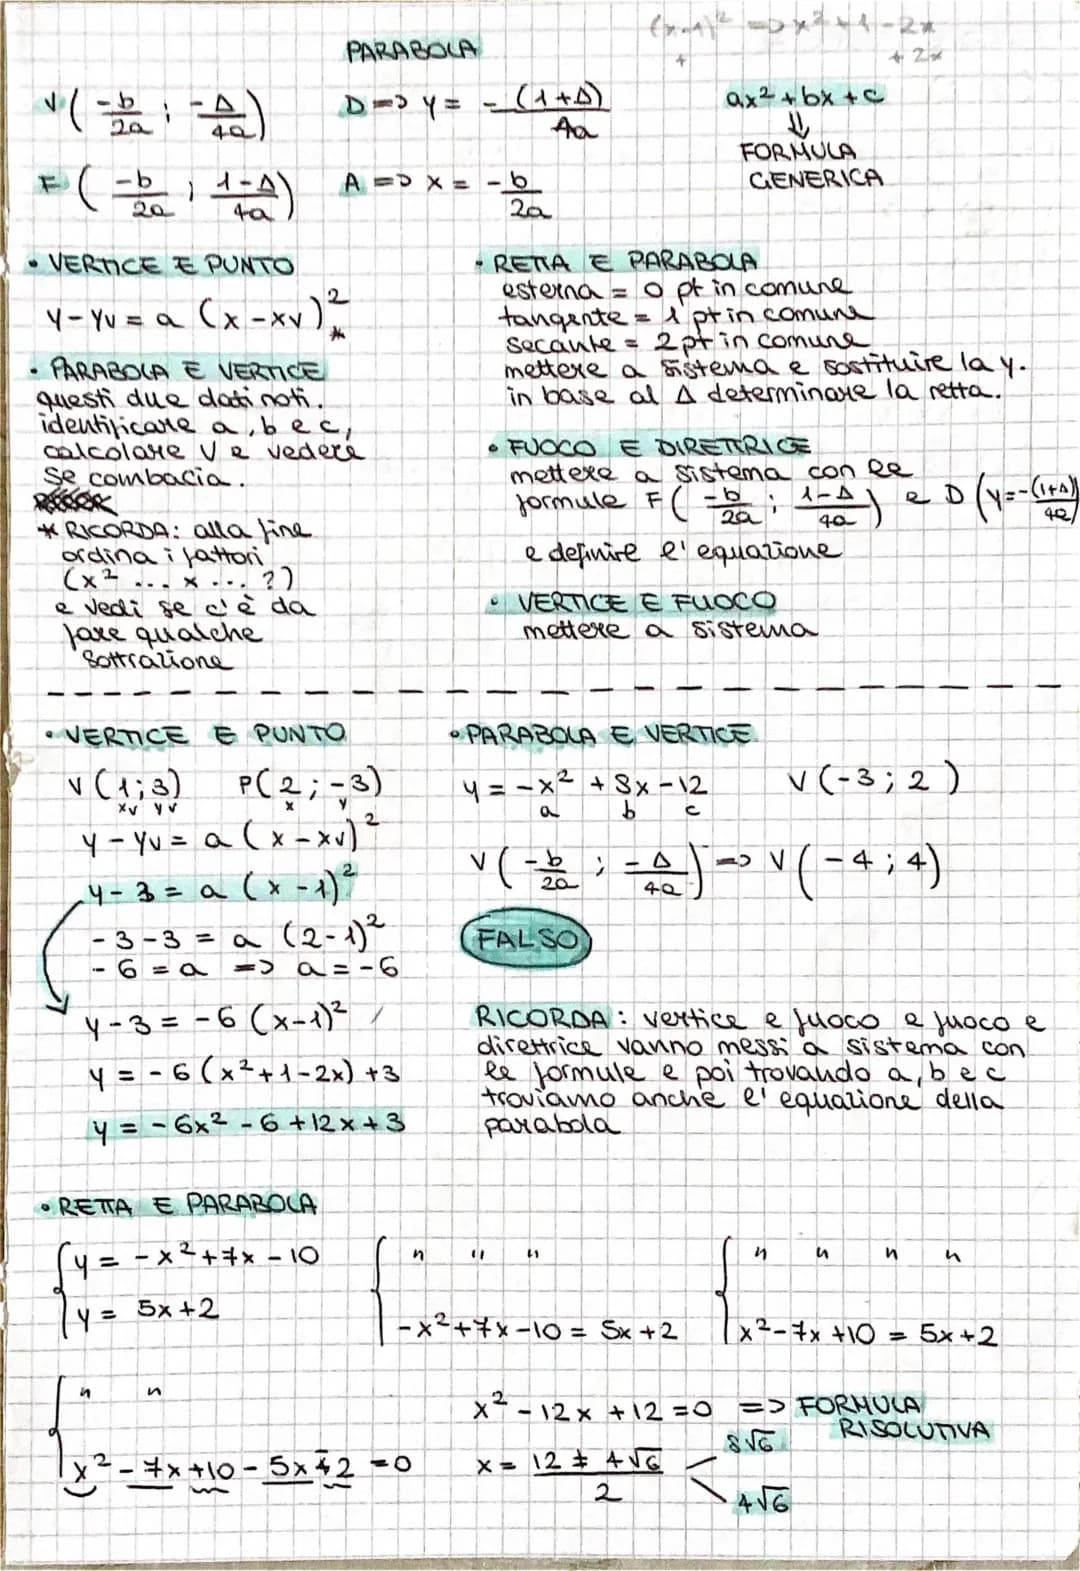 (x-1)² => x²+1-2x
+ +2x
PARABOLA
V (-b/2a ; -Δ/4a)
D => y = - (1+Δ)/4a
ax² + bx + c
⇓
FORMULA
GENERICA
F (-b/2a ; 1-Δ/4a)
A => x = -b/2a
• VERTICE E PUNTO
y-yv = a (x-xv)²*
• PARABOLA E VERTICE
questi due dati noti.
identificare a, b e c,
calcolare V e vedere
se combacia.
* RICORDA: alla fine
ordina i fattori
(x² ... x ... ?)
e vedi se c'è da
fare qualche
sottrazione
• RETTA E PARABOLA
esterna = 0 pt in comune
tangente = 1 pt in comune
secante = 2 pt in comune
mettere a sistema e sostituire la y.
in base al Δ determinare la retta.
• FUOCO E DIRETTRICE
mettere a sistema con le
formule F (-b/2a ; 1-Δ/4a) e D (y=-(1+Δ)/4a)
e definire l'equazione
• VERTICE E FUOCO
mettere a sistema
• VERTICE E PUNTO
V (1;3) P(2;-3)
xv yv x y
y-yv = a (x-xv)²
y-3 = a (x-1)²
-3-3 = a (2-1)²
-6 = a => a = -6
y-3 = -6 (x-1)²
y = -6 (x²+1-2x) +3
y = -6x² -6 +12x +3
• PARABOLA E VERTICE
y = -x² + 8x - 12 V (-3; 2)
a b c
V (-b/2a ; -Δ/4a) => V (-4; 4)
FALSO
RICORDA: vertice e fuoco e fuoco e
direttrice vanno messi a sistema con
le formule e poi trovando a, b e c
troviamo anche l'equazione della
parabola
• RETTA E PARABOLA
{ y = -x²+7x-10
y = 5x+2
{ " " "
-x²+7x-10 = 5x+2
{ " " " "
x²-7x+10 = 5x+2
{ " "
x²-7x+10-5x+2 = 0
x² - 12x + 12 = 0 => FORMULA
RISOLUTIVA
x = 12 ± 4√6 / 2
8√6
4√6